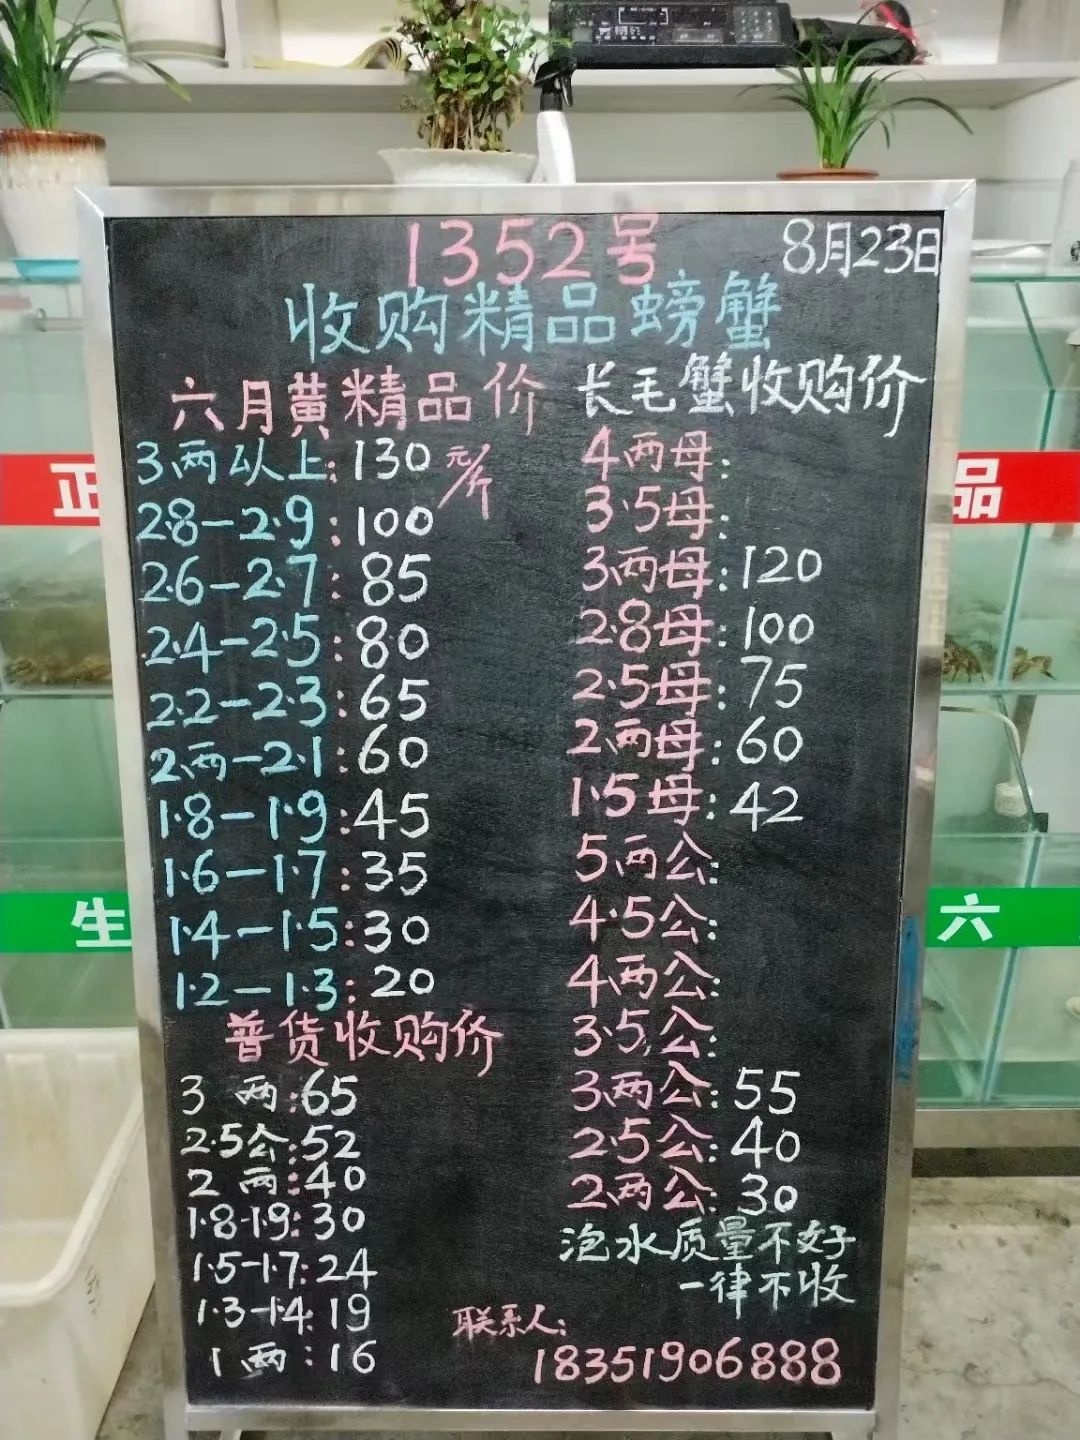 1352号
8月23日
收购精品螃蟹
六月黄精品价
3两以上:130元/斤
2.8-2.9:100
2.6-2.7:85
2.4-2.5:80
2.2-2.3:65
2两-2.1:60
1.8-1.9:45
1.6-1.7:35
1.4-1.5:30
1.2-1.3:20
普货收购价
3 两:65
2.5公:52
2 两:40
1.8-1.9:30
1.5-1.7:24
1.3-1.4:19
1两:16
长毛蟹收购价
4两母:
3.5母:
3两母:120
2.8母:100
2.5母:75
2两母:60
1.5母:42
5两公:
4.5公:
4两公:
3.5公:
3两公:55
2.5公:40
2两公:30
泡水质量不好
一律不收
联系人:
18351906888
正
品
生
六